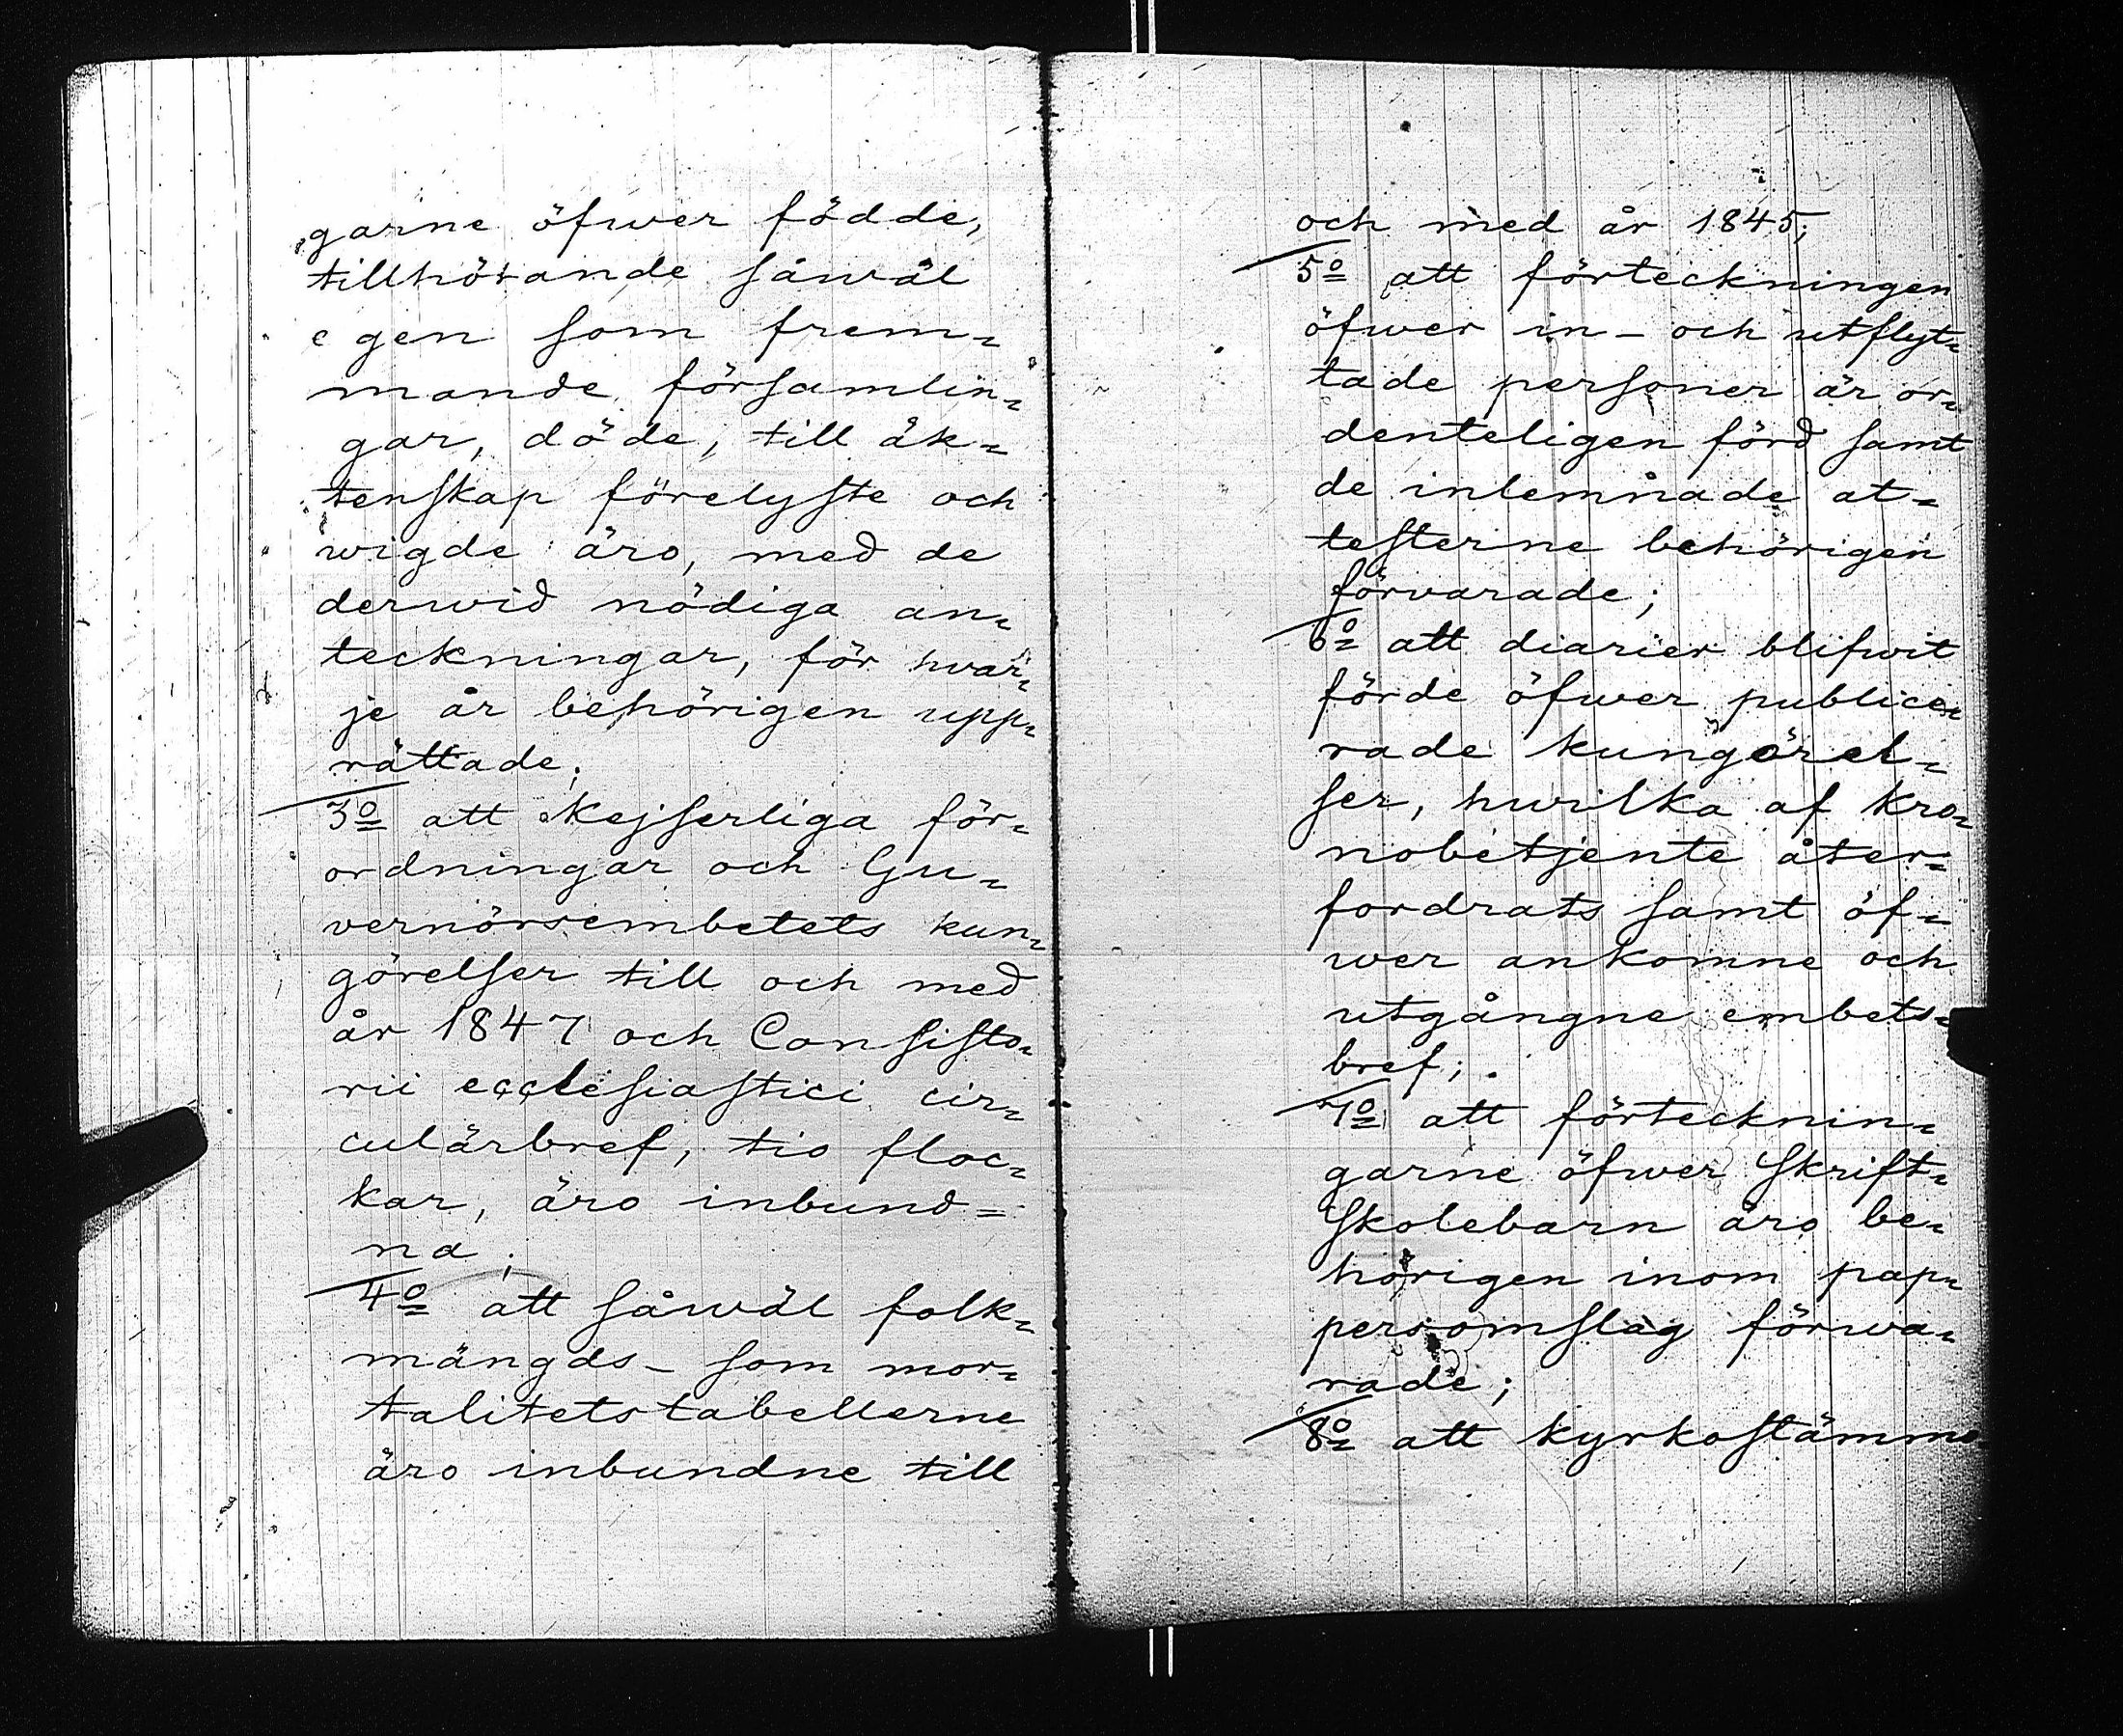 garne öfwer födde,
tillhörande såwäl
egen som frem-
mande församlin-
gar, döde, till äk-
tenskap förelyste och
wigde äro, med de
derwid nödiga an-
teckningar, för hvar-
je år behörigen upp-
rättade;
3o att Kejserliga för-
ordningar och Gu-
vernörsembetets kun-
görelser till och med
år 1847 och Consisto-
rii ecclesiastici cir-
culärbref, tio floc-
kar, äro inbund-
na;
4o att såwäl folk-
mängds- som mor-
talitetstabellerne
äro inbundne till
och med år 1845;
5o att förteckningen
öfwer in- och utflyt-
tade personer är or-
denteligen förd samt
de inlemnade at-
testerne behörigen
förvarade;
6o att diarier blifwit
förde öfwer publice-
rade kungörel-
ser, hwilka af kro-
nobetjente åter-
fordrats samt öf-
wer ankomne och
utgångne embets-
bref;
7o att förtecknin-
garne öfwer Skrift-
Skolebarn äro be-
hörigen inom pap-
personslag förwa-
rade;
8o att kyrkostämmo-